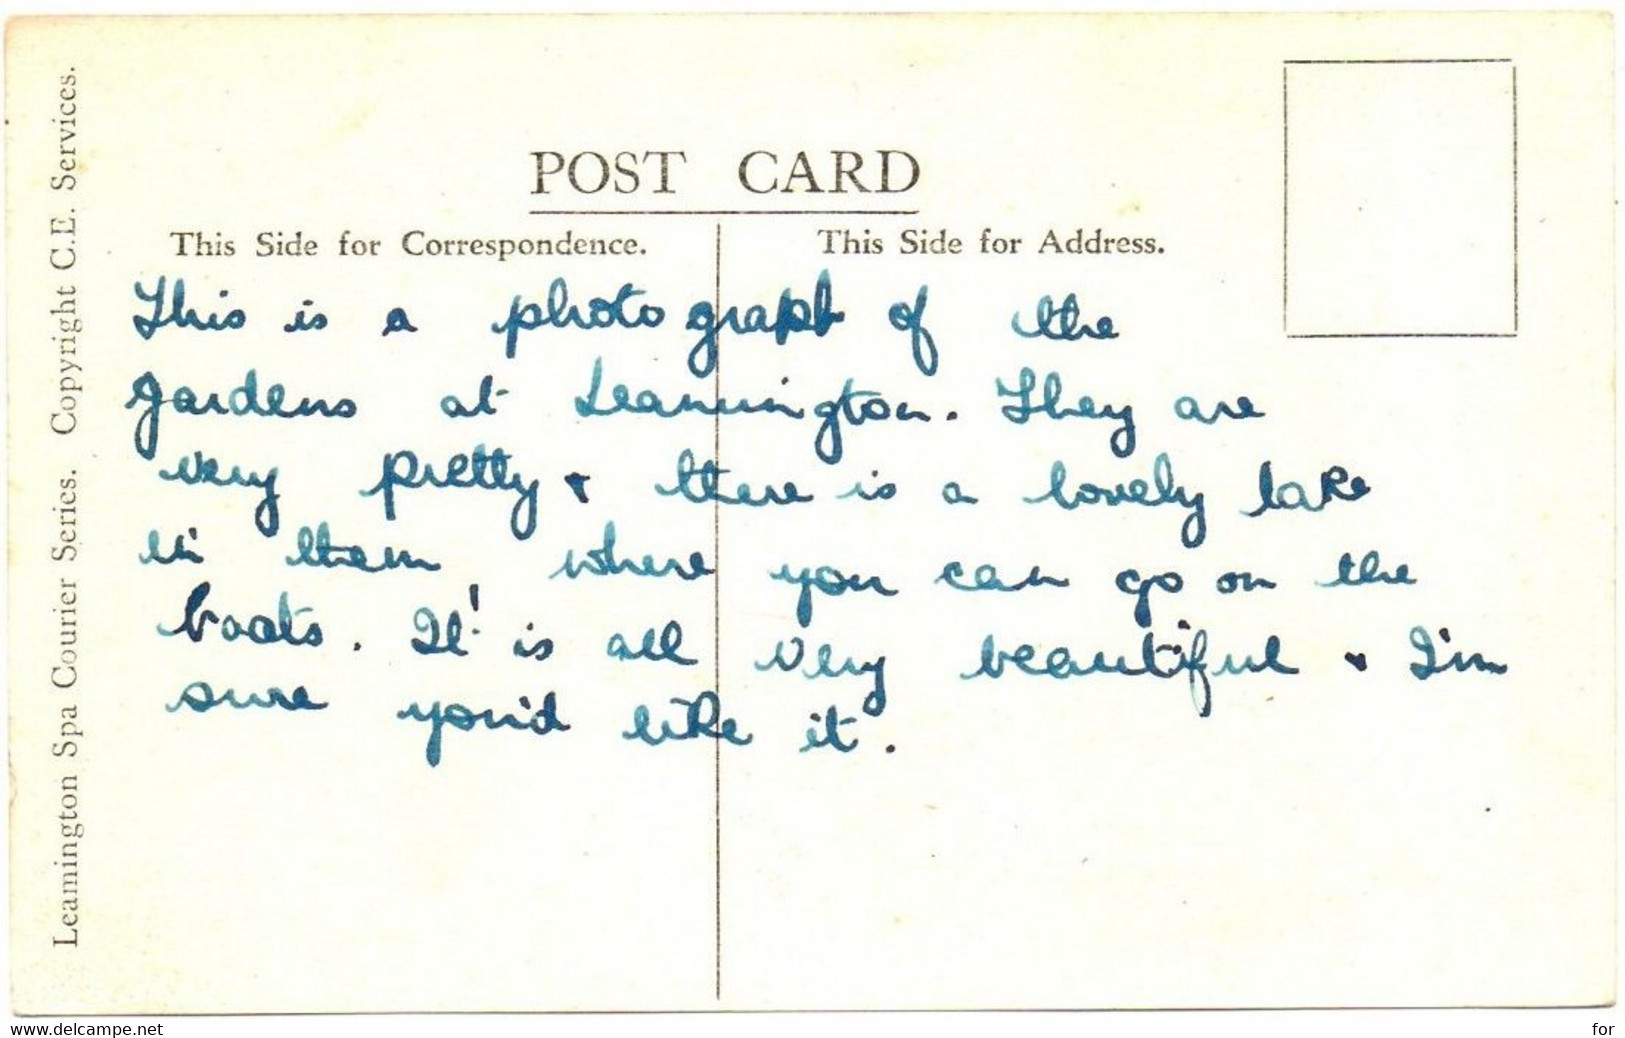 POST CARD
This Side for Correspondence.
This Side for Address.
This is a photo graph of the
gardens at Leamington. They are
very pretty & there is a lovely lake
in them where you can go on the
boats. It! is all very beautiful & I'm
sure you'd like it.
Leamington Spa Courier Series. Copyright C.E. Services.
www.delcampe.net
for